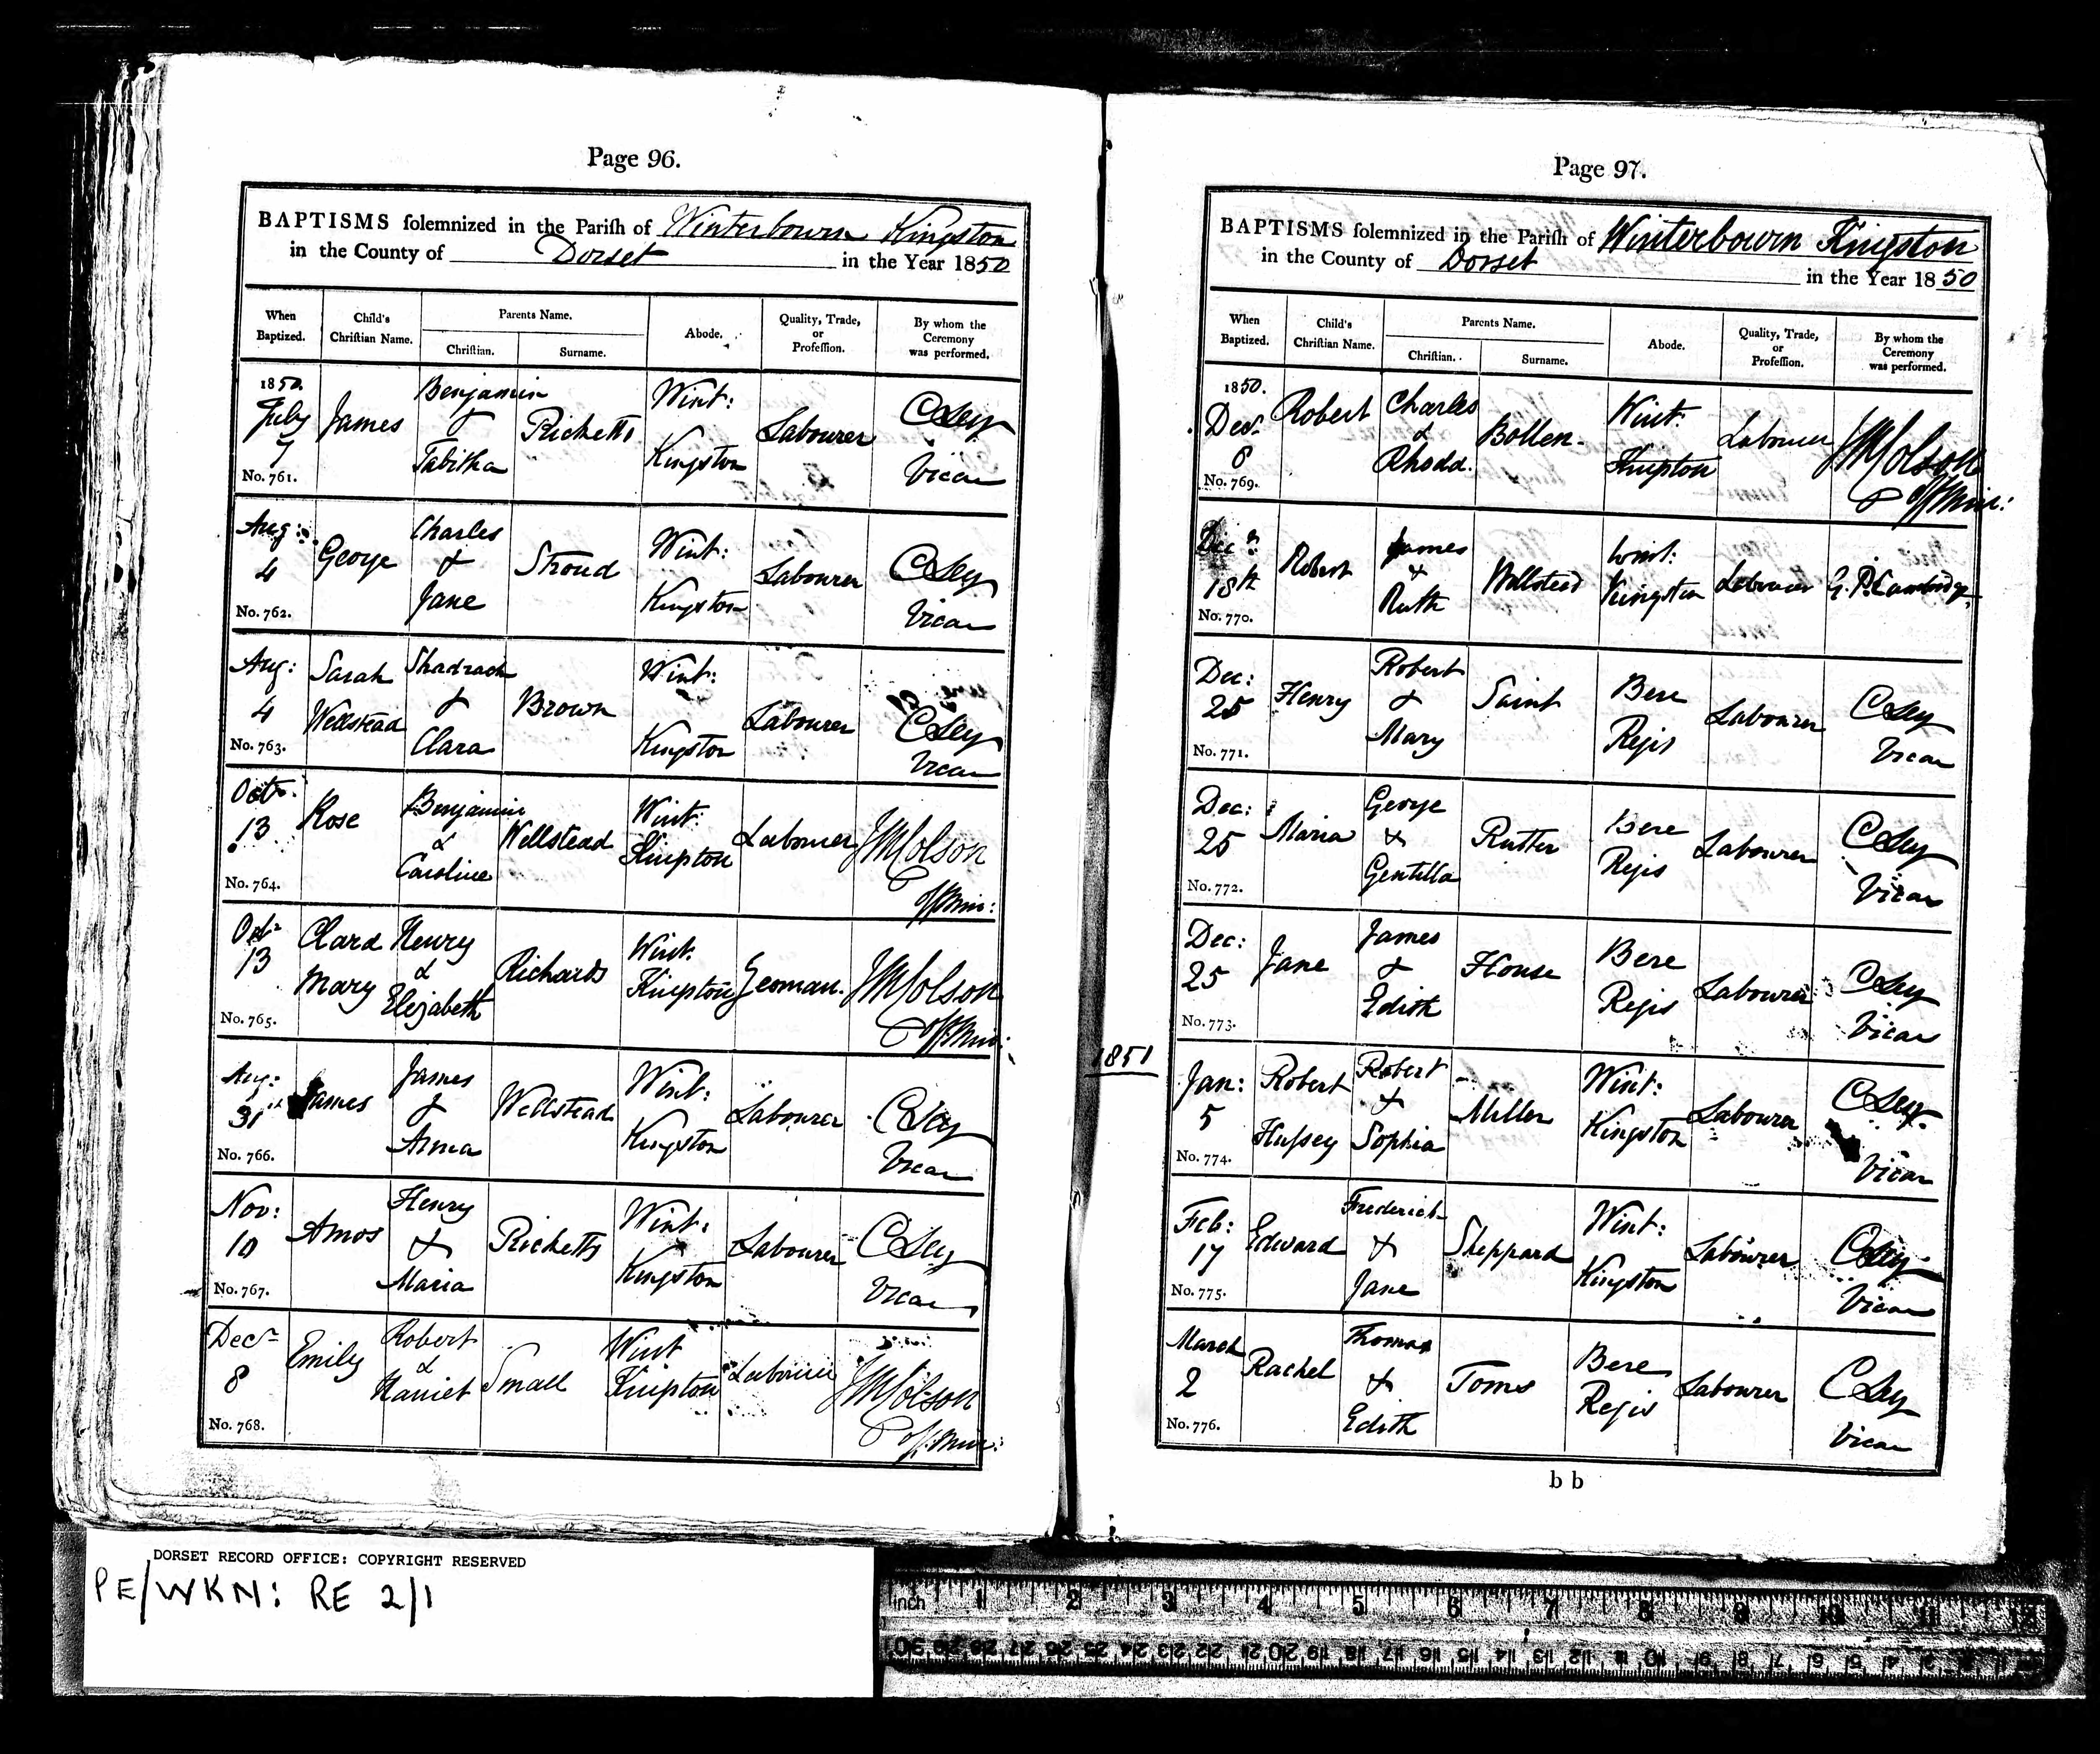 Page 96.
BAPTISMS solemnized in the Parish of Winterbourn Kingston
in the County of Dorset in the Year 1850
When Baptized. Child's Christian Name. Parents Name. Christian. Surname. Abode. Quality, Trade, or Profession. By whom the Ceremony was performed.
1850. July 7 No. 761. James Benjamin & Tabitha Ricketts Wint: Kingston Labourer C Sey Vicar
Aug: 4 No. 762. George Charles & Jane Stroud Wint: Kingston Labourer C Sey Vicar
Aug: 4 No. 763. Sarah Wellstead Shadrach & Clara Brown Wint: Kingston Labourer C Sey Vicar
Octr. 13 No. 764. Rose Benjamin & Caroline Wellstead Wint: Kingston Labourer JM Colson Off Min:
Octr 13 No. 765. Clara Mary Henry & Elizabeth Richards Wint. Kingston Yeoman. JM Colson Off Min:
Aug: 31 No. 766. James James & Anna Wellstead Wint: Kingston Labourer C Sey Vicar
Nov: 10 No. 767. Amos Henry & Maria Ricketts Wint: Kingston Labourer C Sey Vicar
Decr 8 No. 768. Emily Robert & Harriet Small Wint Kingston Labourer JM Colson Off. Min:
Page 97.
BAPTISMS solemnized in the Parish of Winterbourn Kingston
in the County of Dorset in the Year 1850
When Baptized. Child's Christian Name. Parents Name. Christian. Surname. Abode. Quality, Trade, or Profession. By whom the Ceremony was performed.
1850. Decr. 8 No. 769. Robert Charles & Rhoda. Bollen. Wint. Kingston Labourer JM Colson Off Min:
Decr. 18th No. 770. Robert James & Ruth Wellstead Wint: Kingston Labourer G. P. Cambridge
Dec: 25 No. 771. Henry Robert & Mary Saint Bere Regis Labourer C Sey Vicar
Dec: 25 No. 772. Maria George & Gentilla Rutter Bere Regis Labourer C Sey Vicar
Dec: 25 No. 773. Jane James & Edith House Bere Regis Labourer C Sey Vicar
1851
Jan: 5 No. 774. Robert Hussey Robert & Sophia Miller Wint: Kingston Labourer C Sey Vicar
Feb: 17 No. 775. Edward Frederick & Jane Sheppard Wint: Kingston Labourer C Sey Vicar
March 2 No. 776. Rachel Thomas & Edith Toms Bere Regis Labourer C Sey Vicar
b b
DORSET RECORD OFFICE: COPYRIGHT RESERVED
PE/WKN: RE 2/1
inch 1 2 3 4 5 6 7 8 9 10 11 12
30 29 28 27 26 25 24 23 22 21 20 19 18 17 16 15 14 13 12 11 10 9 8 7 6 5 4 3 2 1